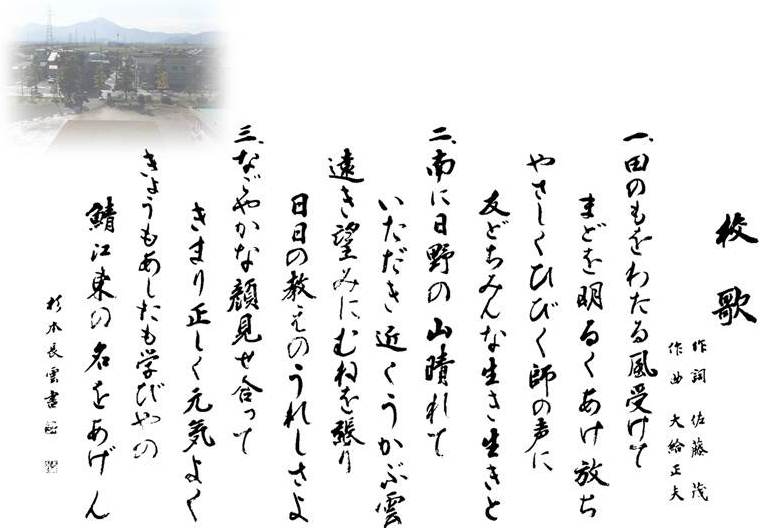 校歌
作詞 佐藤 茂
作曲 大給正夫
一、田のもをわたる風受けて
まどを明るくあけ放ち
やさしくひびく師の声に
友どちみんな生き生きと
二、南に日野の山晴れて
いただき近くうかぶ雲
遠き望みにむねを張り
日日の教えのうれしさよ
三、なごやかな顔見せ合って
きまり正しく元気よく
きょうもあしたも学びやの
鯖江東の名をあげん
杉本長雲書